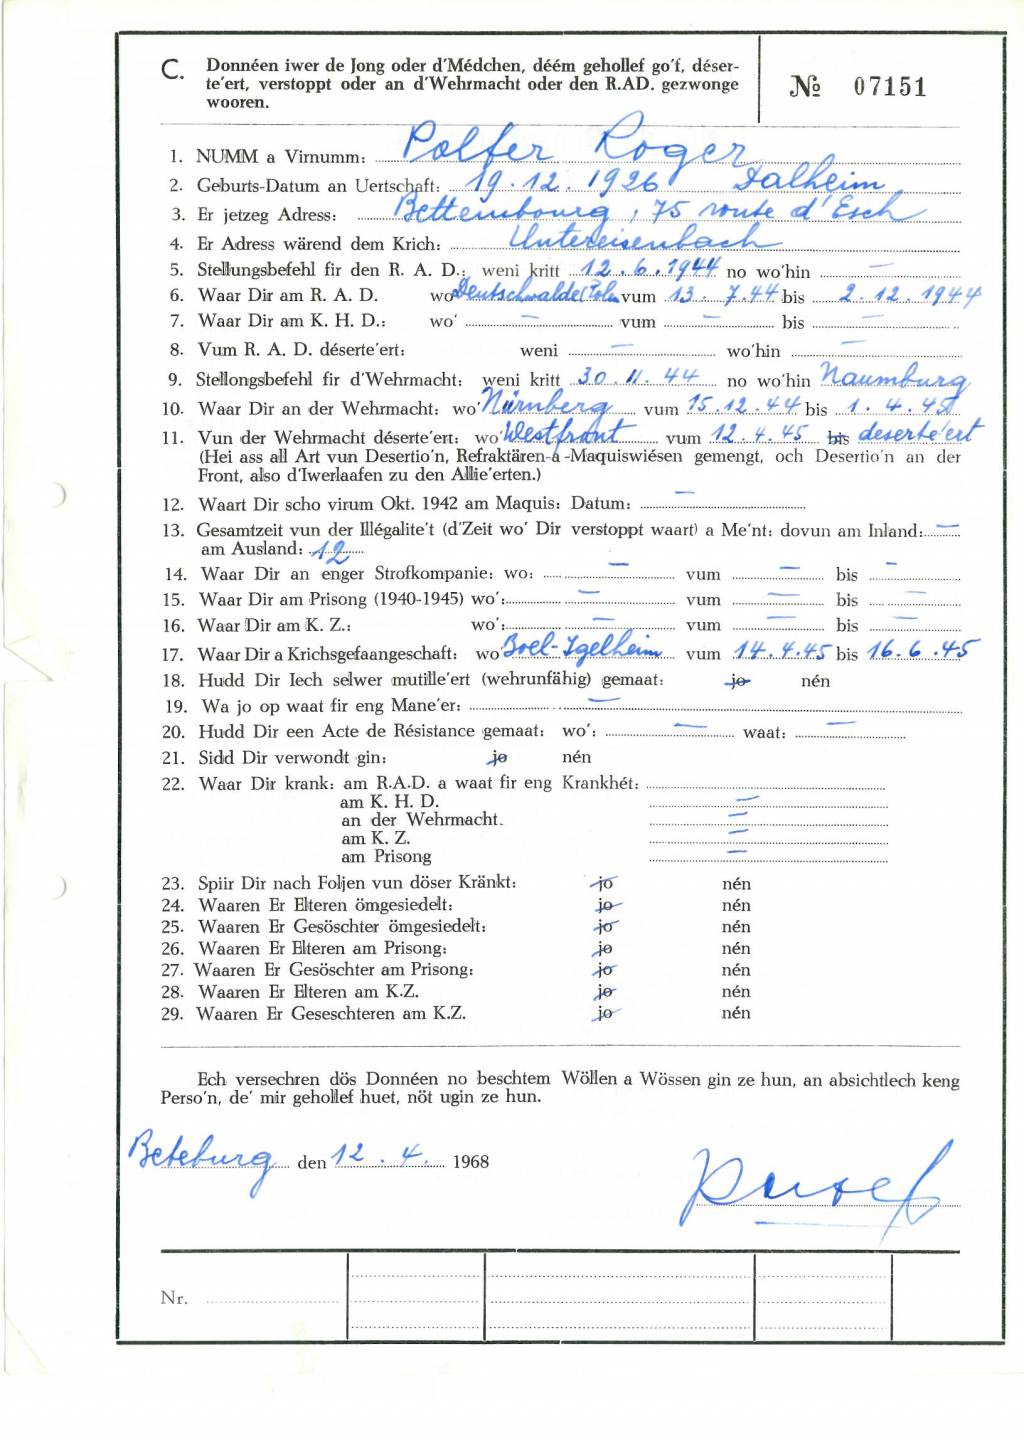 C. Donnéen iwer de Jong oder d'Médchen, déém gehollef go'f, déser-
te'ert, verstoppt oder an d'Wehrmacht oder den R.AD. gezwonge
wooren.
№ 07151
1. NUMM a Virnumm: Polfer Roger
2. Geburts-Datum an Uertschaft: 19.12.1926 Dalheim
3. Er jetzeg Adress: Bettembourg, 75 route d'Esch
4. Er Adress wärend dem Krich: Untereisenbach
5. Stellungsbefehl fir den R. A. D.: weni kritt 12.6.1944 no wo'hin —
6. Waar Dir am R. A. D. wo' Deutschwalde(Polen vum 13.7.44 bis 2.12.1944
7. Waar Dir am K. H. D.: wo' — vum — bis —
8. Vum R. A. D. déserte'ert: weni — wo'hin —
9. Stellongsbefehl fir d'Wehrmacht: weni kritt 30.11.44 no wo'hin Naumburg
10. Waar Dir an der Wehrmacht: wo' Nürnberg vum 15.12.44 bis 1.4.45
11. Vun der Wehrmacht déserte'ert: wo' Westfront vum 12.4.45 bis deserte'ert
(Hei ass all Art vun Desertio'n, Refraktären-a-Maquiswiésen gemengt, och Desertio'n an der
Front, also d'Iwerlaafen zu den Allie'erten.)
12. Waart Dir scho virum Okt. 1942 am Maquis: Datum: —
13. Gesamtzeit vun der Illégalite't (d'Zeit wo' Dir verstoppt waart) a Me'nt: dovun am Inland: —
am Ausland: 12
14. Waar Dir an enger Strofkompanie: wo: — vum — bis —
15. Waar Dir am Prisong (1940-1945) wo': — vum — bis —
16. Waar Dir am K. Z.: wo': — vum — bis —
17. Waar Dir a Krichsgefaangeschaft: wo' Boel-Igelheim vum 14.4.45 bis 16.6.45
18. Hudd Dir Iech selwer mutille'ert (wehrunfähig) gemaat: jo nén
19. Wa jo op waat fir eng Mane'er: —
20. Hudd Dir een Acte de Résistance gemaat: wo': — waat: —
21. Sidd Dir verwondt gin: jo nén
22. Waar Dir krank: am R.A.D. a waat fir eng Krankhét:
am K. H. D. —
an der Wehrmacht. —
am K. Z. —
am Prisong —
23. Spiir Dir nach Foljen vun döser Kränkt: jo nén
24. Waaren Er Elteren ömgesiedelt: jo nén
25. Waaren Er Gesöschter ömgesiedelt: jo nén
26. Waaren Er Elteren am Prisong: jo nén
27. Waaren Er Gesöschter am Prisong: jo nén
28. Waaren Er Elteren am K.Z. jo nén
29. Waaren Er Geseschteren am K.Z. jo nén
Ech versechren dös Donnéen no beschtem Wöllen a Wössen gin ze hun, an absichtlech keng
Perso'n, de' mir gehollef huet, nöt ugin ze hun.
Beteburg den 12.4. 1968
Nr.